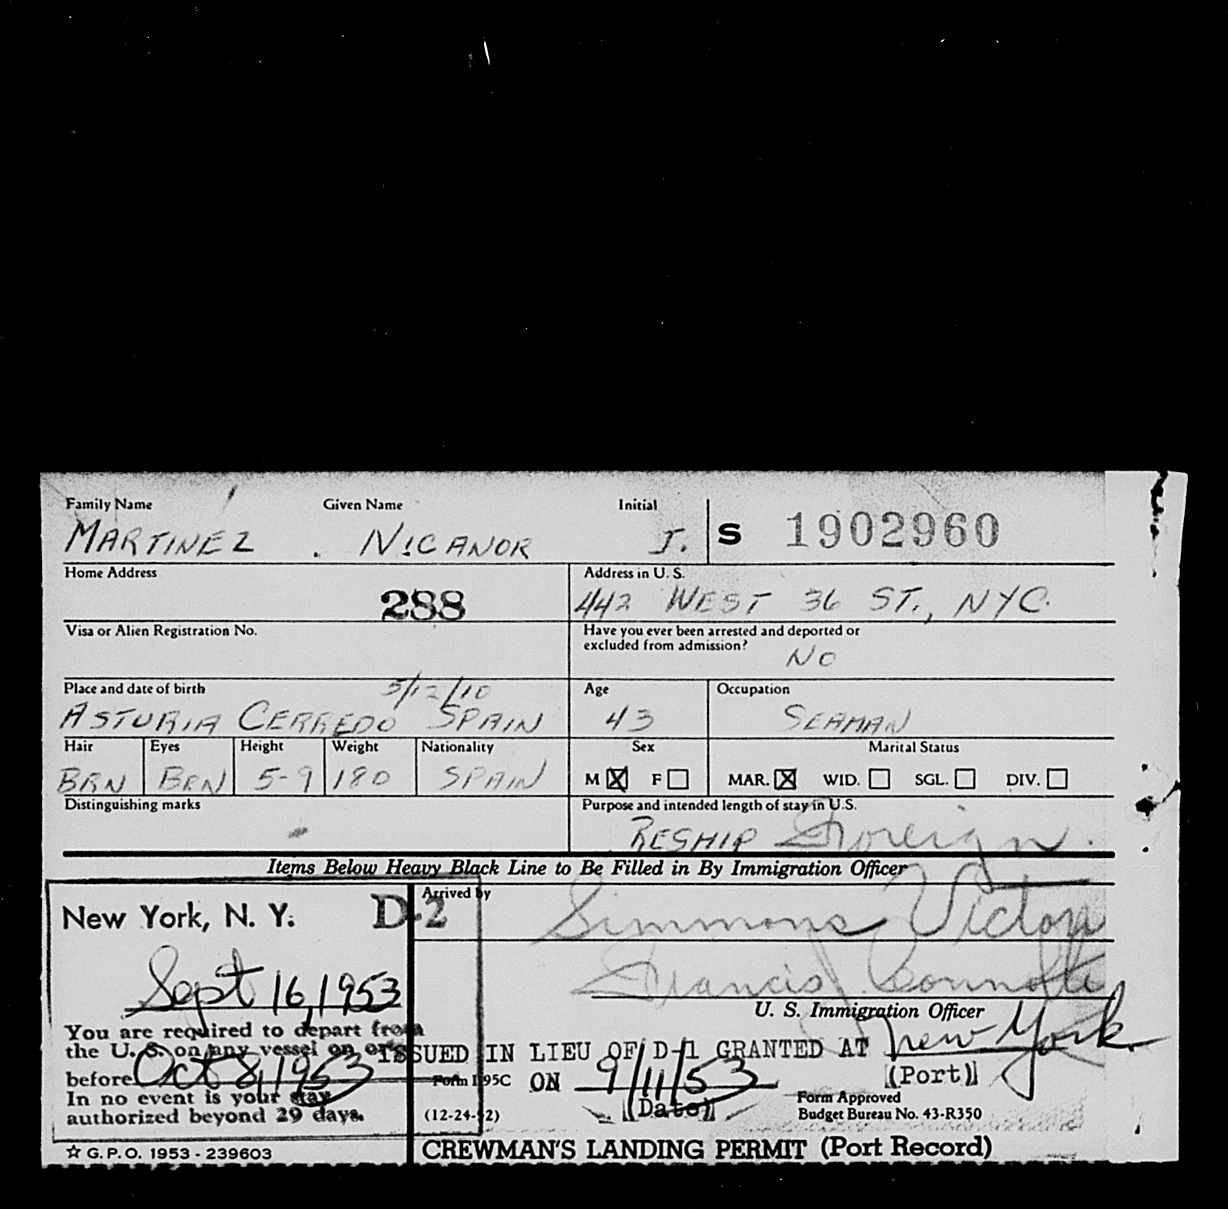 Family Name Given Name Initial
MARTINEZ . NICANOR J. S 1902960
Home Address Address in U. S.
288 442 WEST 36 ST., NYC.
Visa or Alien Registration No. Have you ever been arrested and deported or
excluded from admission? NO
Place and date of birth 5/12/10 Age Occupation
ASTURIA CERREDO SPAIN 43 SEAMAN
Hair Eyes Height Weight Nationality Sex Marital Status
BRN BRN 5-9 180 SPAIN M ☒ F ☐ MAR. ☒ WID. ☐ SGL. ☐ DIV. ☐
Distinguishing marks Purpose and intended length of stay in U.S.
RESHIP Foreign.
Items Below Heavy Black Line to Be Filled in By Immigration Officer
Arrived by
New York, N. Y. D-2 Simmons Victory
Sept 16, 1953 Francis
U. S. Immigration Officer
You are required to depart from
the U. S. on any vessel on or
before Oct 8, 1953
In no event is your stay
authorized beyond 29 days.
ISSUED IN LIEU OF D-1 GRANTED AT New York
(Port)
Form I-95C ON 9/11/53
(12-24-52) (Date)
Form Approved
Budget Bureau No. 43-R350
☆ G. P. O. 1953 - 239603 CREWMAN'S LANDING PERMIT (Port Record)